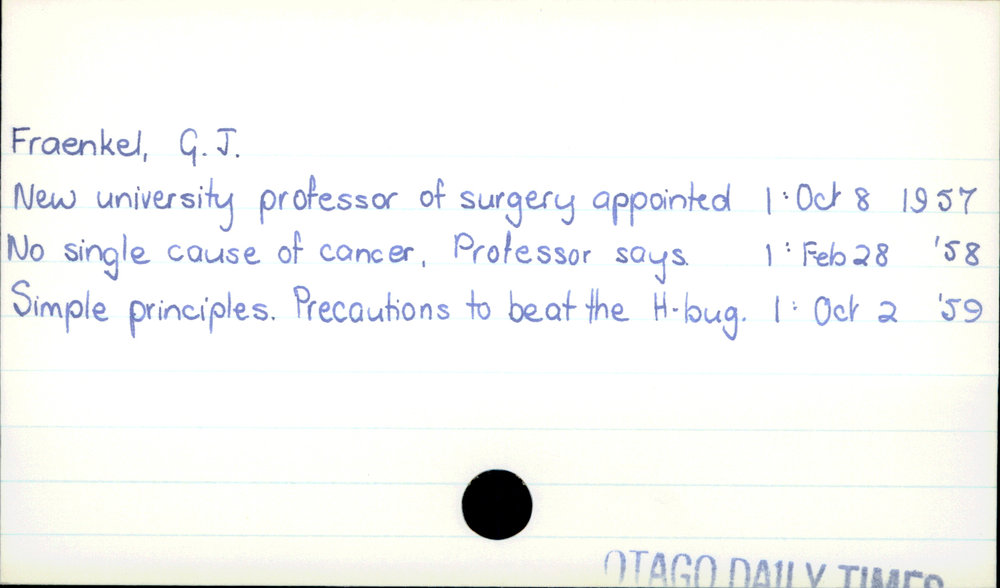 Fraenkel, G. J.
New university professor of surgery appointed 1: Oct 8 1957
No single cause of cancer, Professor says. 1: Feb 28 '58
Simple principles. Precautions to beat the H-bug. 1: Oct 2 '59
OTAGO DAILY TIMES